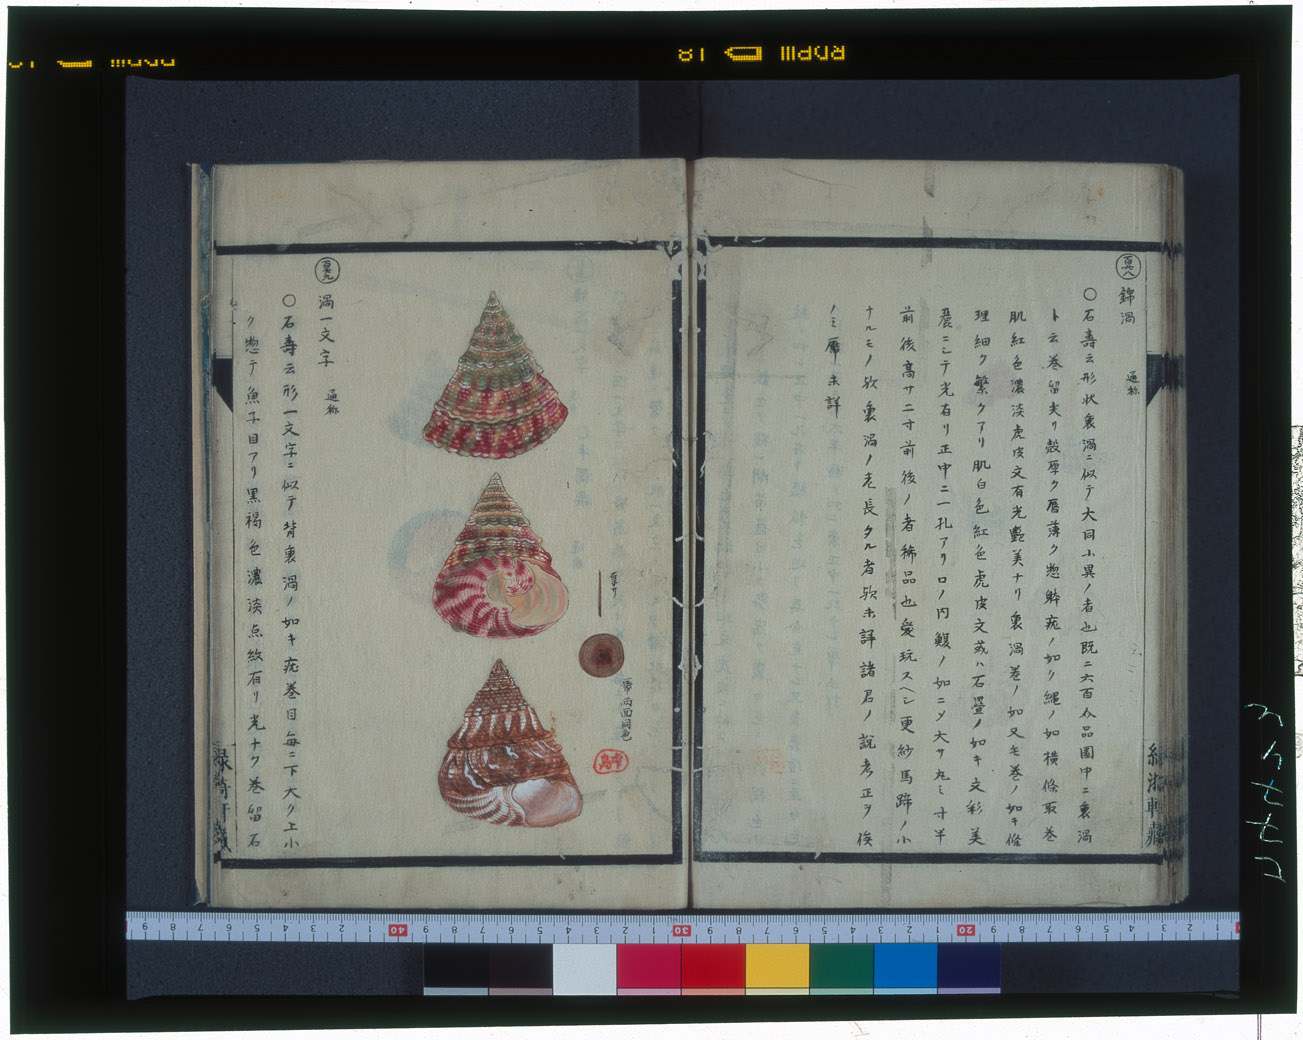 百七八
錦渦 通称
○石寿云形状裏渦ニ似テ大同小異ノ者也既ニ六百介品図中ニ裏渦
ト云巻留尖リ殻厚ク唇薄ク惣躰疣ノ如ク縄ノ如横條取巻
肌紅色濃淡虎皮文有光艶美ナリ裏渦巻ノ如又毛巻ノ如キ條
理細ク繁クアリ肌白色紅色虎皮文或ハ石畳ノ如キ文彩美
麗ニシテ光有リ正中ニ一孔アリ口ノ内鰒ノ如ニメ大サ丸ミ寸半
前後高サニ寸前後ノ者稀品也愛玩スヘシ更紗馬蹄ノ小
ナルモノ欤裏渦ノ老長タル者欤未詳諸君ノ説考正ヲ俟
ノミ厴未詳
厚サ
厴両面同色
百七九
渦一文字 通称
○石寿云形一文字ニ似テ背裏渦ノ如キ疣巻目毎ニ下大ク上小
ク惣テ魚子目アリ黒褐色濃淡点紋有リ光ナク巻留石
RDPIII
18
40
30
20